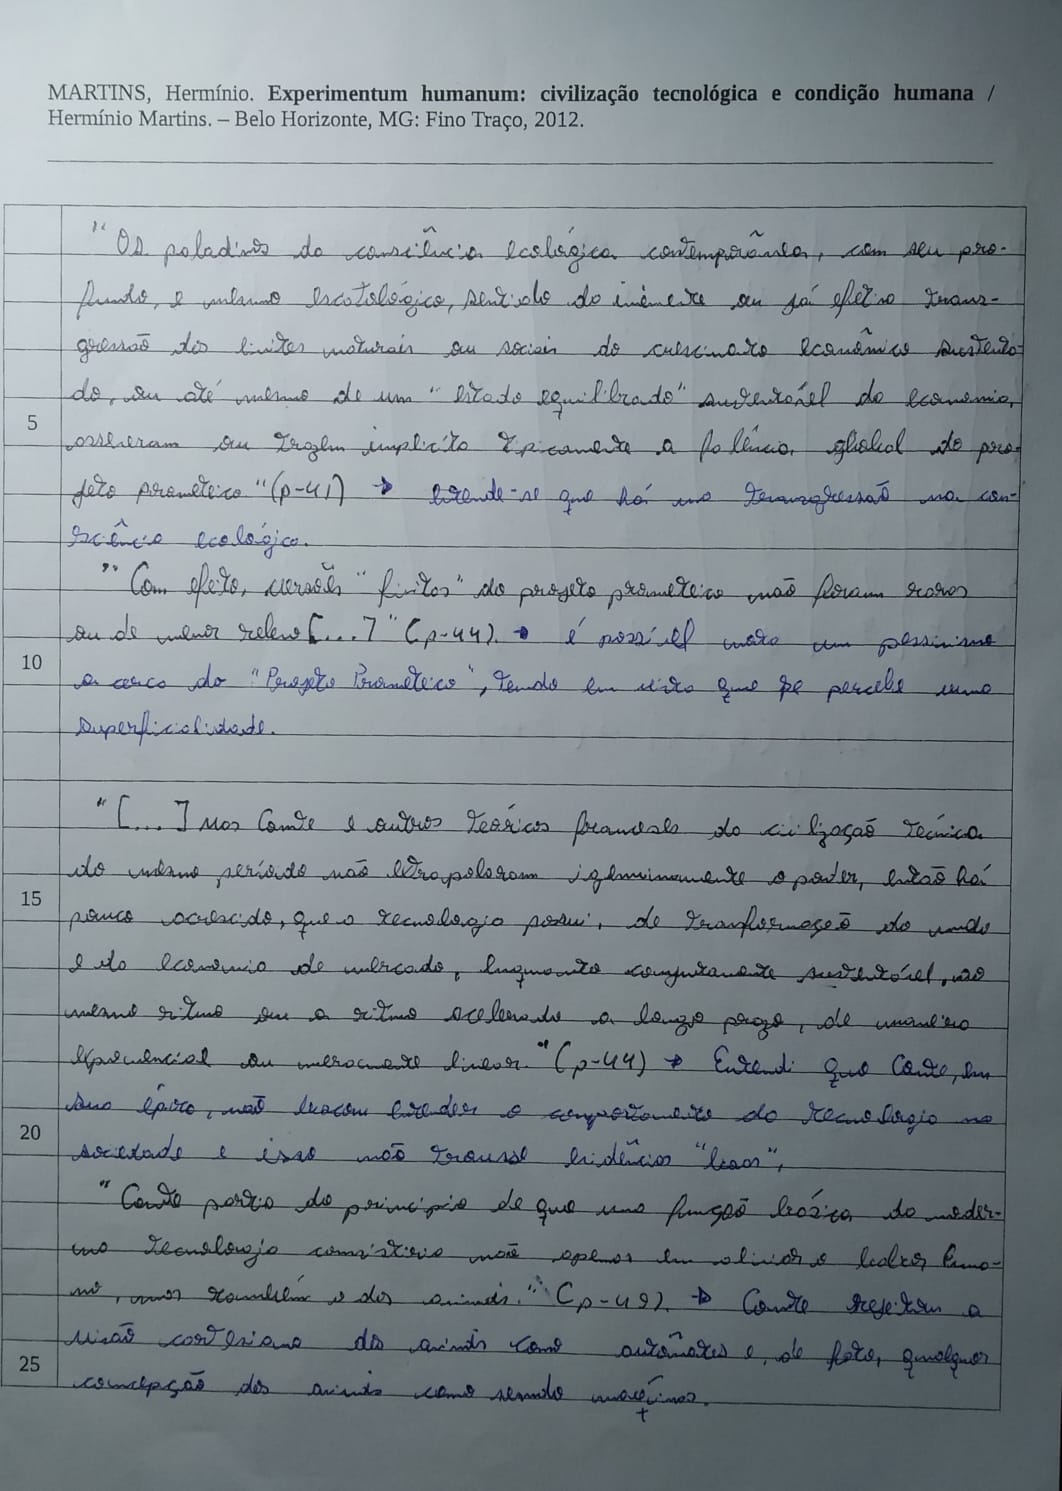 MARTINS, Hermínio. Experimentum humanum: civilização tecnológica e condição humana /
Hermínio Martins. – Belo Horizonte, MG: Fino Traço, 2012.
"Os paladinos da consciência ecológica contemporânea, com seu pro-
fundo, e mesmo escatológico, sentido do iminente ou já efetivo trans-
gressão dos limites naturais ou sociais do crescimento econômico sustenta-
5
do, ou até mesmo de um "estado equilibrado" sustentável da economia,
asseveram ou trazem implícito tipicamente a falência global do pro-
jeto prometeico" (p-41) → entende-se que há uma transgressão na con-
sciência ecológica.
"Com efeito, versões "finitas" do projeto prometeico não foram raras
ou de menor relevo [...]" (p-44). → é possível notar um pessimismo
10
a cerca do "Projeto Prometeico", tendo em vista que se percebe uma
superficialidade.
"[...] Mas Comte e outros teóricos franceses da civilização técnica
do mesmo período não extrapolaram ingenuamente o poder, então há
15
pouco acrescido, que a tecnologia possui, de transformação do mundo
e da economia de mercado, enquanto conjuntamente sustentável, ao
mesmo ritmo ou a ritmo acelerado a longo prazo, de maneira
exponencial ou meramente linear." (p-44) → Entendi que Comte, em
sua época, não buscou entender o comportamento da tecnologia na
20
sociedade e isso não trouxe evidências "boas",
"Comte partia do princípio de que uma função básica da moder-
na tecnologia consistiria não apenas em aliviar o labor huma-
no, mas também o dos animais." (p-49). → Comte rejeitou a
visão cartesiana dos animais como autômatos e, de fato, qualquer
25
concepção dos animais como sendo máquinas.